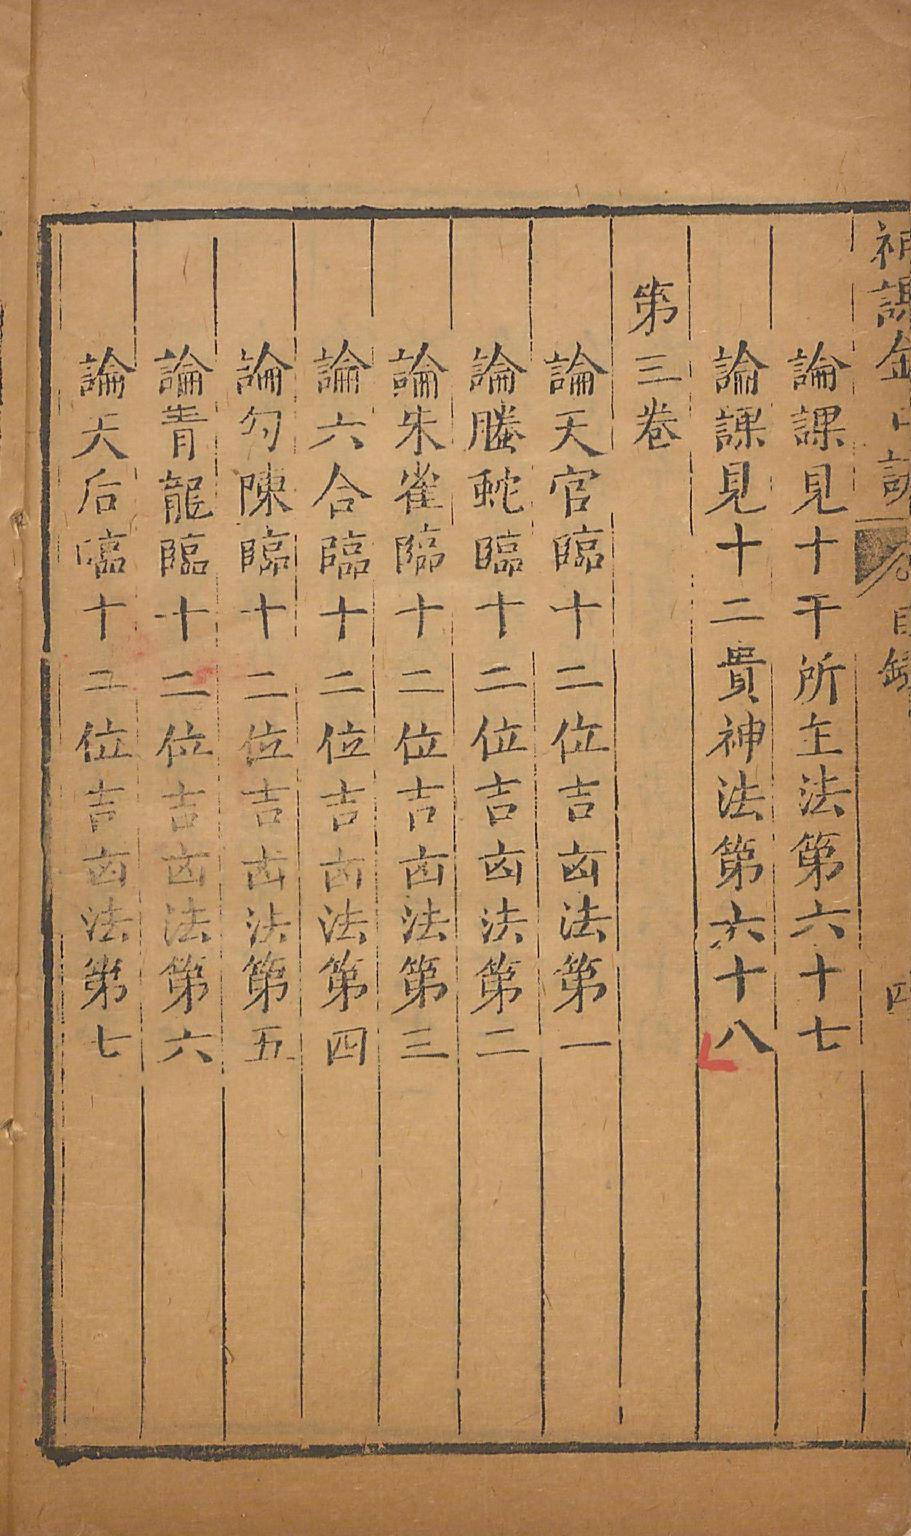 神課金口訣 卷目錄 四
論課見十干所主法第六十七
論課見十二貴神法第六十八
第三卷
論天官臨十二位吉凶法第一
論螣蛇臨十二位吉凶法第二
論朱雀臨十二位吉凶法第三
論六合臨十二位吉凶法第四
論勾陳臨十二位吉凶法第五
論青龍臨十二位吉凶法第六
論天后臨十二位吉凶法第七